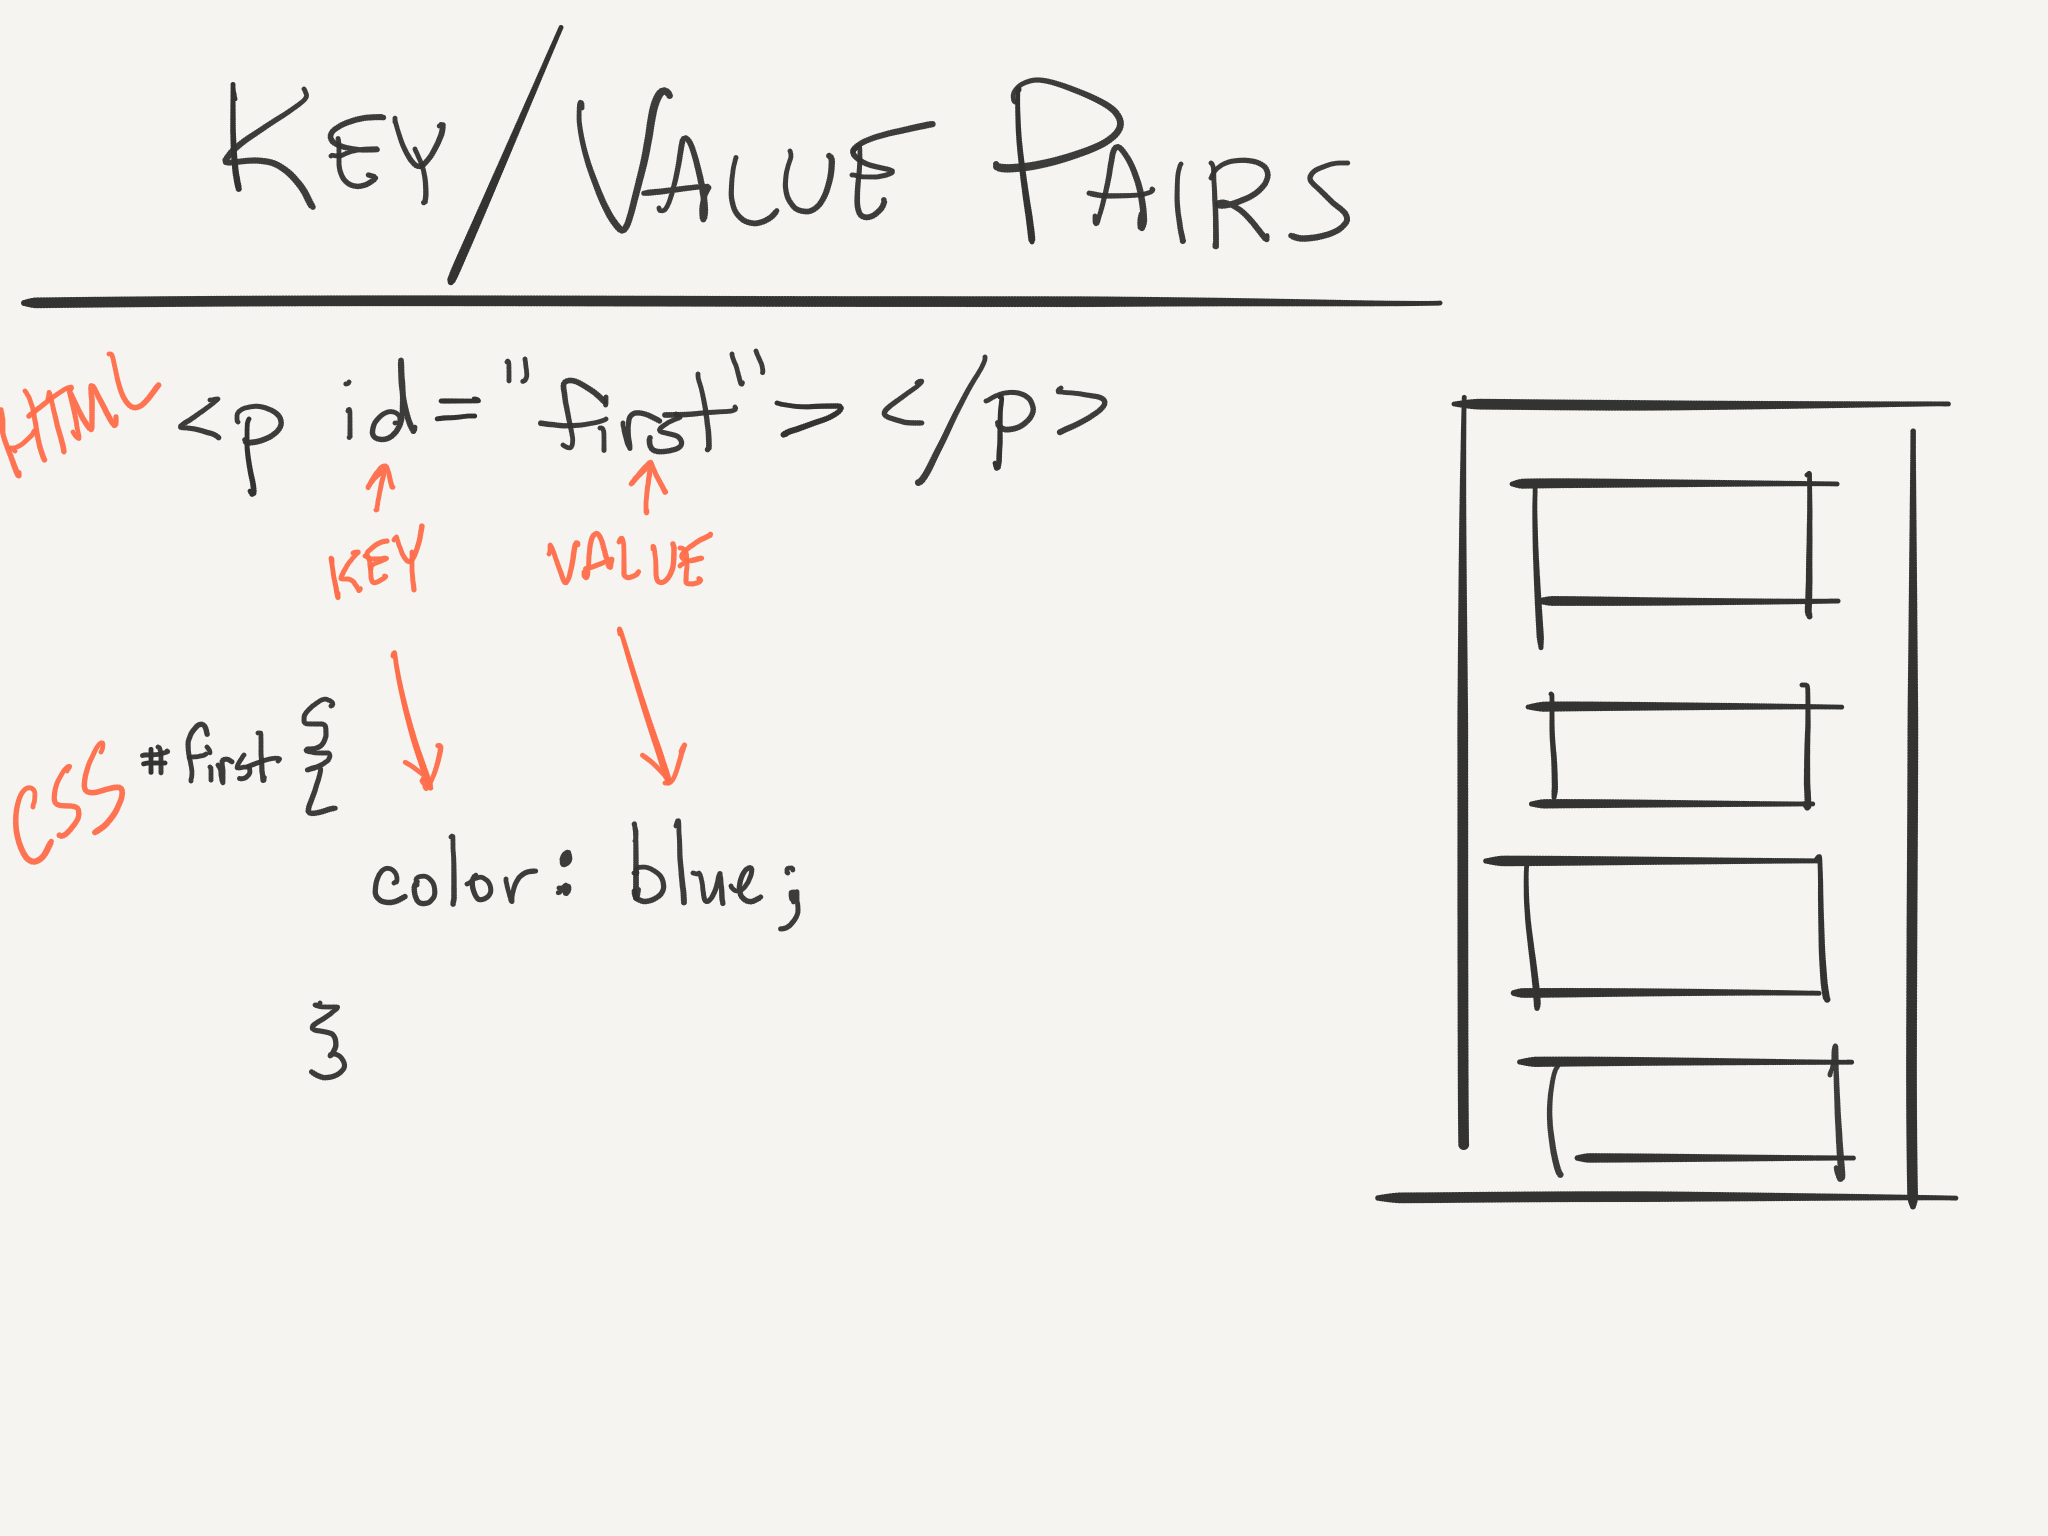 KEY/VALUE PAIRS
HTML <p id="first"></p>
KEY VALUE
CSS #first {
color: blue;
}